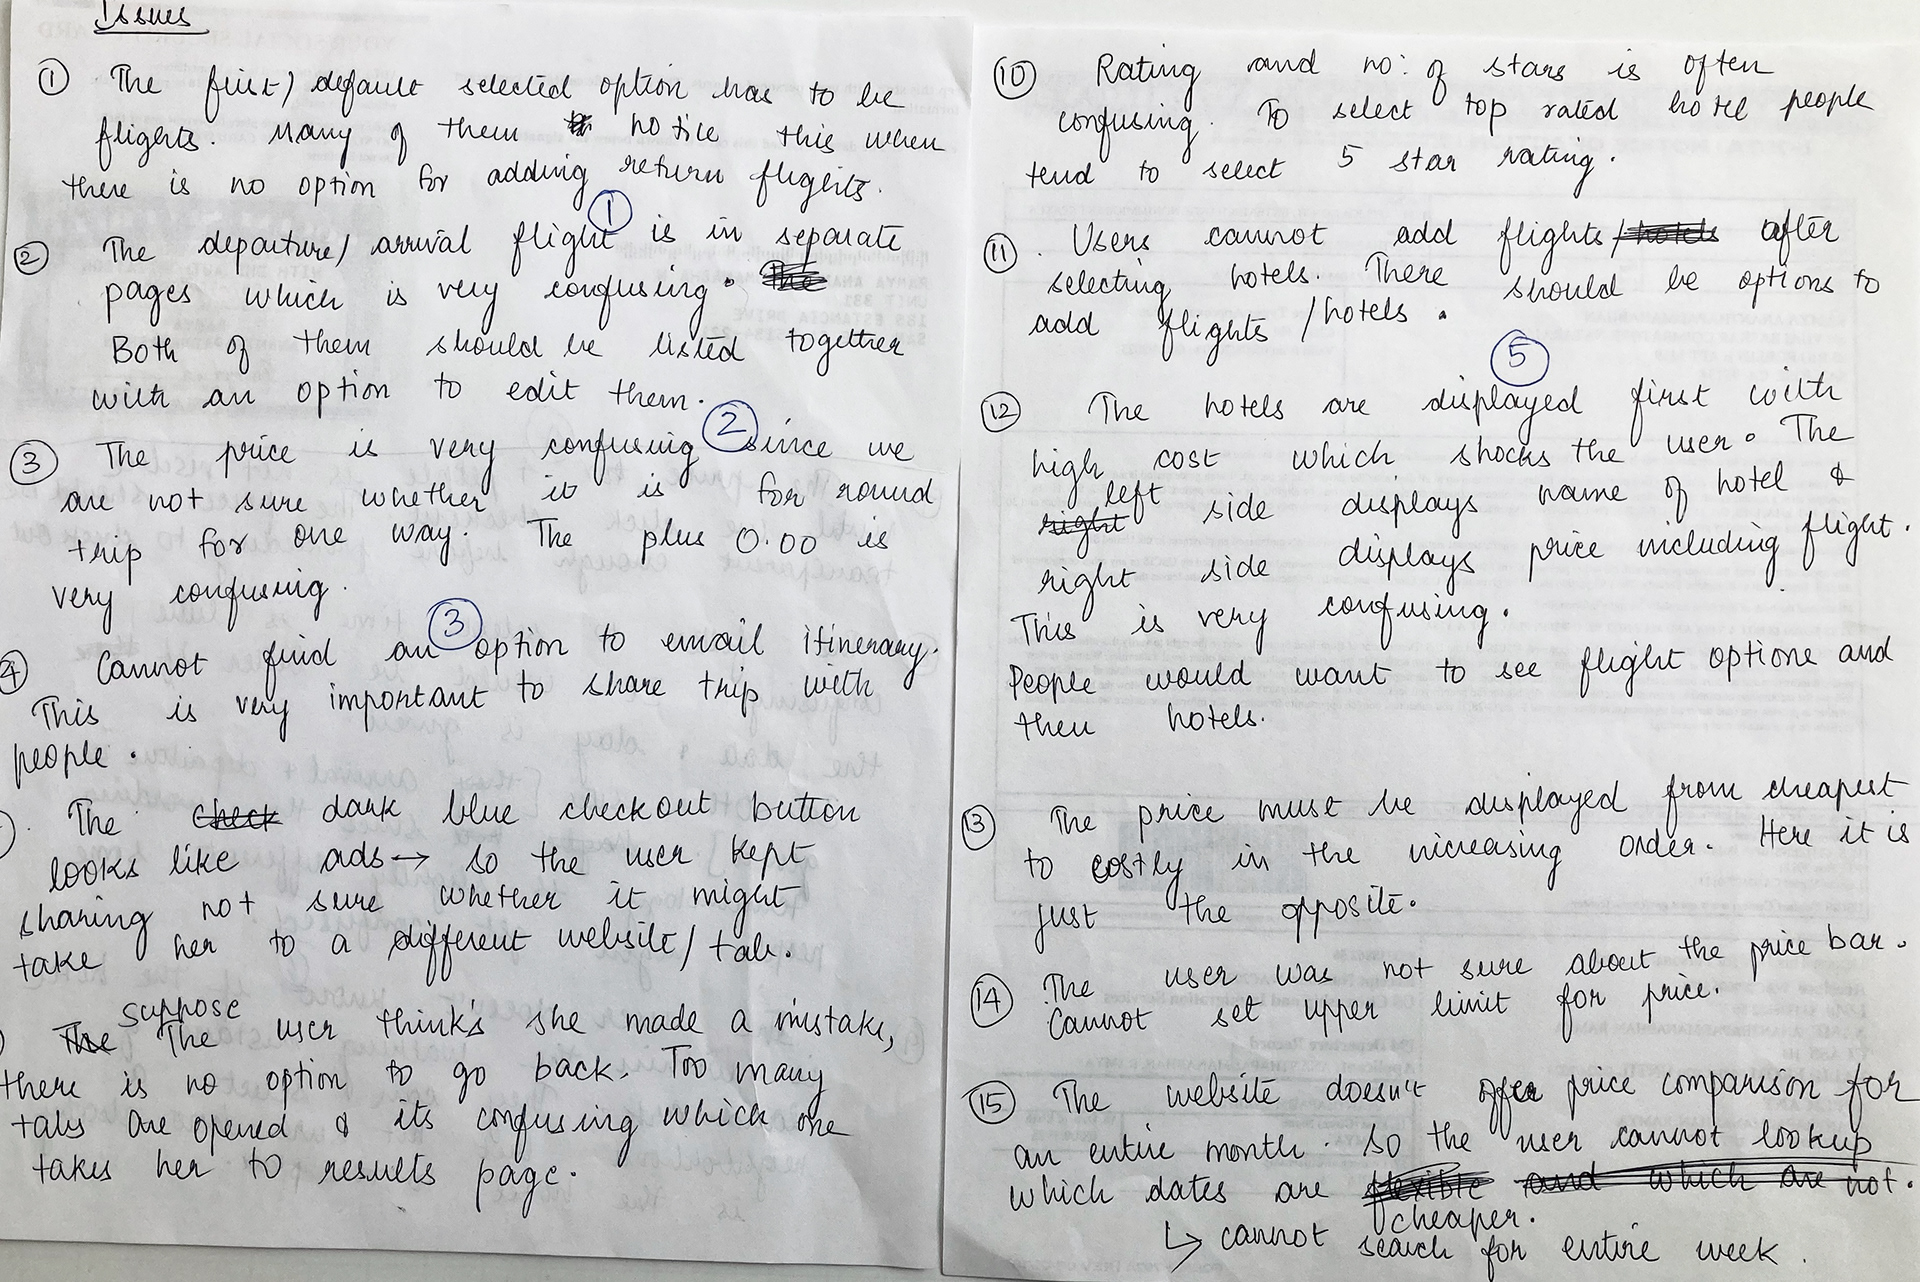 Issues
① The first/default selected option has to be
flights. Many of them notice this when
there is no option for adding return flights.
①
② The departure/arrival flight is in separate
pages which is very confusing.
Both of them should be listed together
with an option to edit them.
②
③ The price is very confusing since we
are not sure whether it is for round
trip for one way. The plus 0.00 is
very confusing.
③
④ Cannot find an option to email itinerary.
This is very important to share trip with
people.
The check dark blue checkout button
looks like ads → so the user kept
sharing not sure whether it might
take her to a different website/tab.
suppose
The The user think's she made a mistake,
there is no option to go back. Too many
tabs are opened & its confusing which one
takes her to results page.
⑩ Rating and no: of stars is often
confusing. To select top rated hotel people
tend to select 5 star rating.
⑪ Users cannot add flights/hotels after
selecting hotels. There should be options to
add flights/hotels.
⑤
⑫ The hotels are displayed first with
high cost which shocks the user. The
left
right side displays name of hotel &
right side displays price including flight.
This is very confusing.
People would want to see flight options and
then hotels.
⑬ The price must be displayed from cheapest
to costly in the increasing order. Here it is
just the opposite.
⑭ The user was not sure about the price bar.
Cannot set upper limit for price.
⑮ The website doesn't offer price comparison for
an entire month. So the user cannot lookup
which dates are flexible and which are not.
cheaper.
↳ cannot search for entire week.